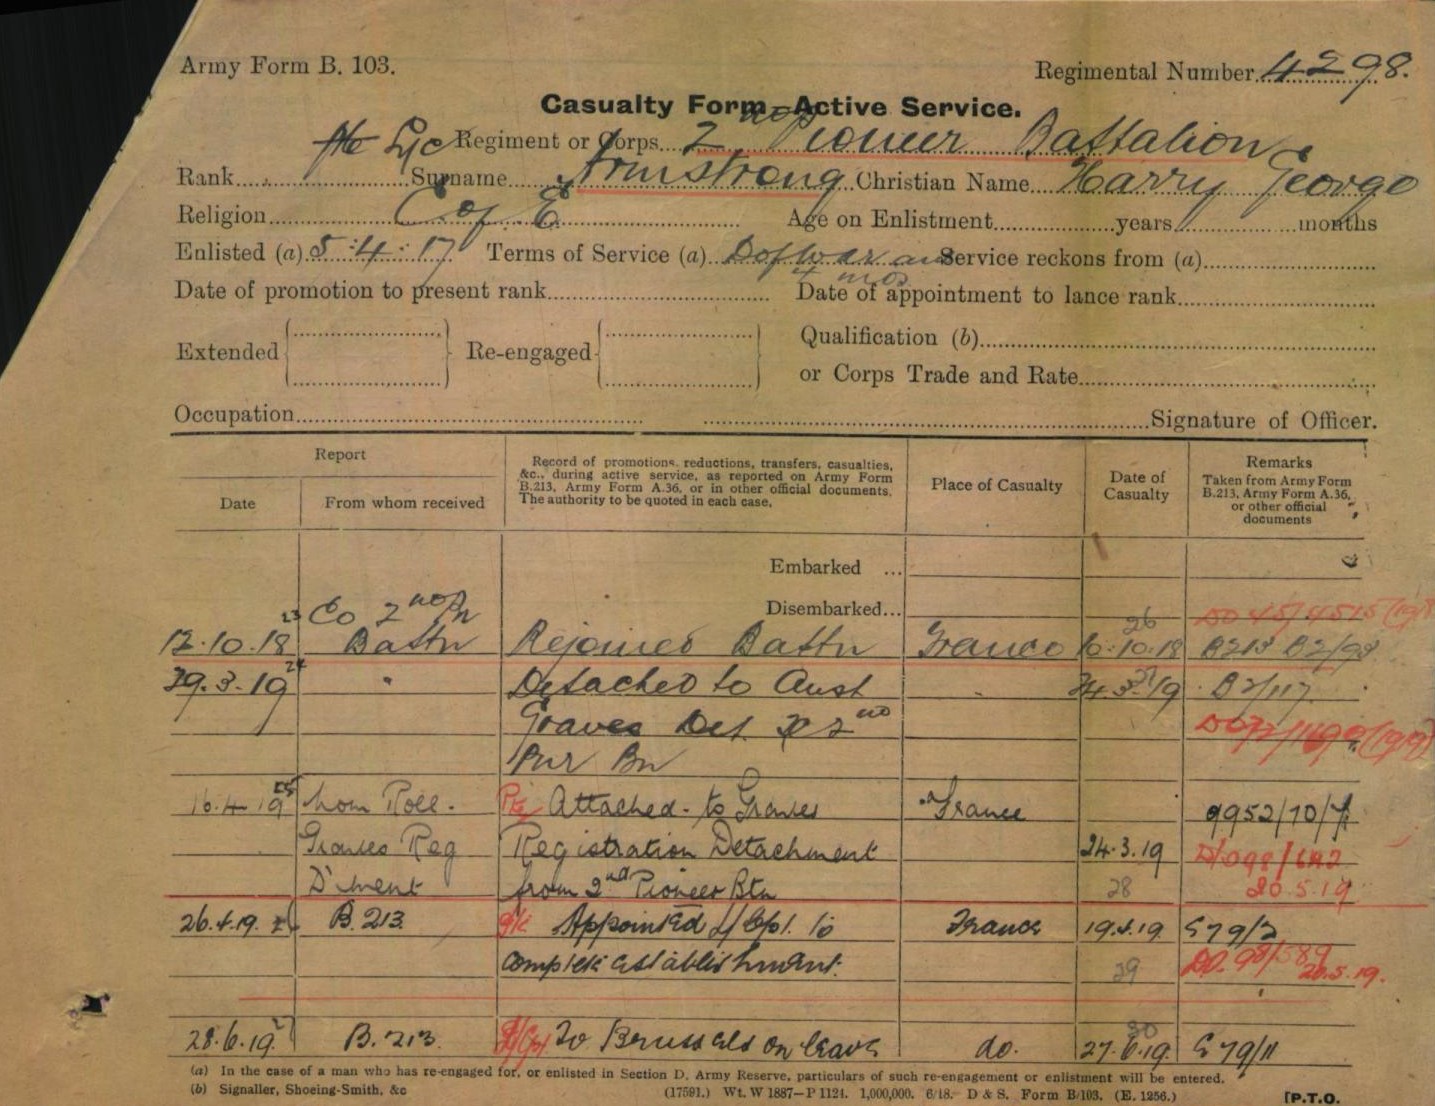 Army Form B. 103.
Regimental Number 4298.
Casualty Form—Active Service.
Pte L/c Regiment or Corps 2nd Pioneer Battalion
Rank Surname Armstrong Christian Name Harry George
Religion C of E Age on Enlistment years months
Enlisted (a) 5:4:17 Terms of Service (a) D of war and Service reckons from (a)
4 mos
Date of promotion to present rank Date of appointment to lance rank
Extended Re-engaged Qualification (b)
or Corps Trade and Rate
Occupation Signature of Officer.
Report
Date From whom received
Record of promotions, reductions, transfers, casualties,
&c., during active service, as reported on Army Form
B.213, Army Form A.36, or in other official documents.
The authority to be quoted in each case.
Place of Casualty
Date of
Casualty
Remarks
Taken from Army Form
B.213, Army Form A.36,
or other official
documents
Embarked ...
Disembarked...
23 Co 2nd Pn 26 DO 45/4515
12.10.18 Battn Rejoined Battn France 10.10.18 B213 B2/93
24 27
29.3.19 " Detached to Aust " 24.3.19 B2/117
Graves Det. 2nd
Pnr Bn
25
16.4.19 Nom Roll. Pte Attached to Graves France 9952/70/
Graves Reg Registration Detachment 24.3.19 DO98/
D'ment from 2nd Pioneer Btn 28 20.5.19
26.4.19 B.213 Appointed L/Cpl. to France 19.4.19 G79/2
complete establishment. 29 DO.98/589
20.5.19.
30
28.6.19 B.213. L/Cpl To Brussels on leave do. 27.6.19 G79/11
(a) In the case of a man who has re-engaged for, or enlisted in Section D. Army Reserve, particulars of such re-engagement or enlistment will be entered.
(b) Signaller, Shoeing-Smith, &c (17591.) Wt. W 1887—P 1124. 1,000,000. 6/18. D & S. Form B/103. (E. 1256.) [P.T.O.